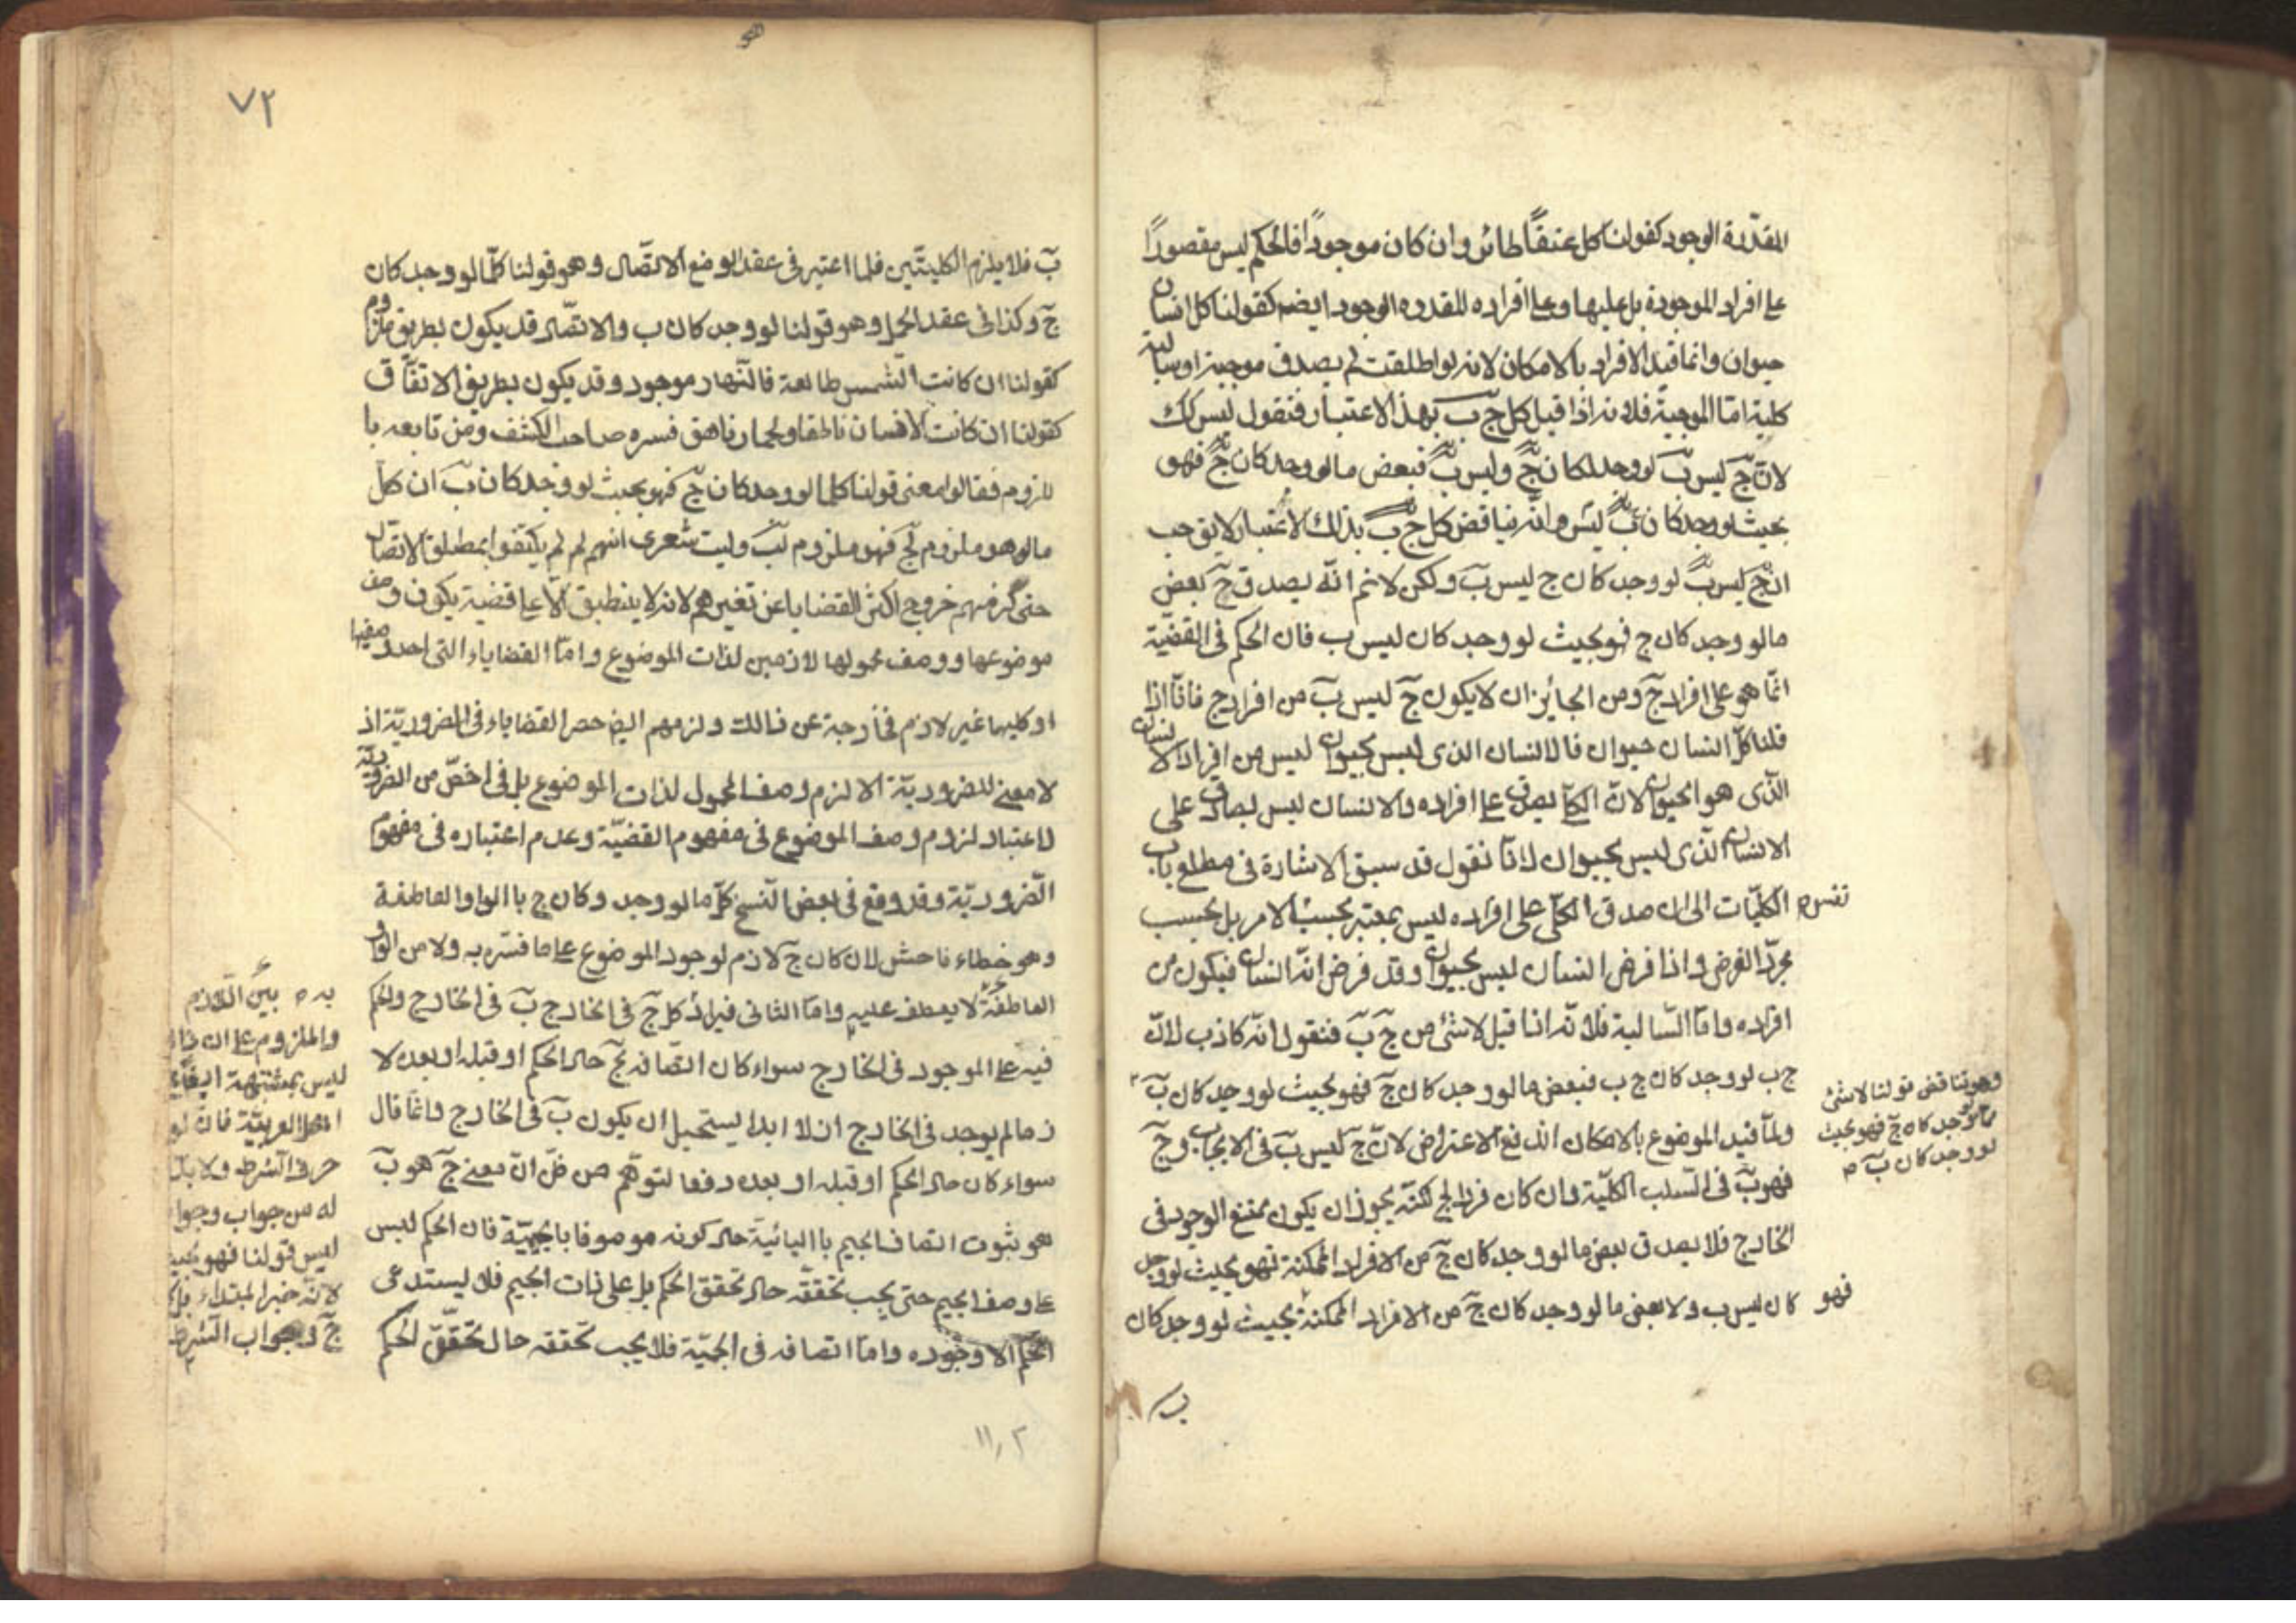 المقدّرة الوجود كقولنا كل عنقاً طائر وان كان موجوداً فالحكم ليس مقصوراً
على افراد الموجودة بل عليها وعلى افراده المقدره الوجود ايضه كقولنا كل انسان
حيوان وانما قيد الافراد بالامكان لانه لو اطلقت لم يصدق موجبة او سالبة
كلية امّا الموجبة فلانه اذا قيل كل ج ب بهذا الاعتبار فنقول ليس كك
لان ج ليس ب لو وجد لكان ج وليس ب فبعض ما لو وجد كان ج فهو
بحيث لو وجد كان ليس وانّه يناقض كل ج ب بذلك الاعتبار لا يق حب
ان ج ليس ب لو وجد كان ج ليس ب ولكن لانم انّه يصدق ج بعض
ما لو وجد كان ج فهو بحيث لو وجد كان ليس ب فان الحكم فى القضيّة
انّما هو على افراد ج ومن الجائز ان لا يكون ج ليس ب من افراد ج فانّا اذا
قلنا كلّ انسان حيوان فالانسان الذى ليس بحيوان ليس من افراد الانسان
الّذى هو الحيوان لانّ الكلّى يصدق على افراده والانسان ليس بصادق على
الانسان الّذى ليس بحيوان لانّا نقول قد سبق الاشارة فى مطلع باب
الكليّات الى ان صدق الكلّى على افراده ليس بمعتبر بحسب الامر بل بحسب
نفس ه
مجرّد الفرض واذا فرض انسان ليس بحيوان وقد فرض انّه انسان فيكون من
افراده وامّا السّالبة فلانّه اذا قيل لا شئ من ج ب فنقول انّه كاذب لانّ
ج ب لو وجد كان ج ب فبعض ما لو وجد كان ج فهو بحيث لو وجد كان ب
وهو يناقض قولنا لا شئ
ممّا لو وجد كان ج فهو بحيث
لو وجد كان ب ه
ولمّا قيد الموضوع بالامكان اندفع الاعتراض لانّ ج ليس ب فى الايجاب وج
فهو ب فى السّلب الكليّة وان كان فردا لج لكنّه يجوز ان يكون ممتنع الوجود فى
الخارج فلا يصدق بعض ما لو وجد كان ج من الافراد الممكنة فهو بحيث لو وجد
كان ليس ب ولا بعض ما لو وجد كان ج من الافراد الممكنة بحيث لو وجد كان
فهو
ب
٧٢
ب فلا يلزم الكليتّين فلما اعتبر فى عقد الوضع الاتصّال وهو قولنا كلّما لو وجد كان
ج وكذا فى عقد الحمل وهو قولنا لو وجد كان ب والاتصّال قد يكون بطريق ملزوم
كقولنا ان كانت الشّمس طالعة فالنّهار موجود وقد يكون بطريق الاتفّاق
كقولنا ان كانت الانسان ناطقا والحمار ناهق فسره صاحب الكشف ومن تابعه با
للزوم فقالوا معنى قولنا كلما لو وجد كان ج فهو بحيث لو وجد كان ب ان كلّ
ما لو هو ملزوم لج فهو ملزوم لب وليت شعرى انهم لم لم يكتفوا بمطلق الاتصال
حتى لزمهم خروج اكثر القضايا عن تغيرهم لانه لا ينطبق الّا على قضية يكون وصف
موضوعها ووصف محمولها لازمين لذات الموضوع وامّا القضايا التى احد وصفيها
او كليهما غير لازم فخارجة عن ذالك ولزمهم ايض حصر القضايا فى الضروريّة اذ
لا معنى للضروريّة الا لزم وصف المحمول لذات الموضوع بل فى اخصّ من الضروريّة
لاعتبار لزوم وصف الموضوع فى مفهوم القضيّة وعدم اعتباره فى مفهوم
الضروريّة وقد وقع فى بعض النّسخ كلّ ما لو وجد وكان ج باالواو العاطفة
وهو خطاء فاحش لان كان ج لازم لوجود الموضوع على ما فسّر به ولا من الواو
العاطفة لا يعطف عليه وامّا الثانى فيراد كل ج فى الخارج ب فى الخارج والحكم
فيه على الموجود فى الخارج سواء كان اتصّافه بج حال الحكم او قبله او بعده لا
ن ما لم يوجد فى الخارج ازلا ابدا يستحيل ان يكون ب فى الخارج وانّما قال
سواء كان حال الحكم او قبله او بعده دفعا لتوهّم من ظنّ انّ معنى ج هو ب
هو ثبوت اتصاف الجيم باالبائيّة حال كونه موصوفا بالجيميّة فان الحكم ليس
على وصف الجيم حتى يجب تحققّه حال تحقق الحكم بل على ذات الجيم فلا يستدعى
الحكم الا وجوده وامّا اتصافه فى الجيّة فلا يجب تحققه حال تحققّ الحكم
به ه بيّن اللازم
والملزوم على ان
ليس بمشتبهة
اهل العربيّة فان لو
حرف الشّرط ولا بدّ
له من جواب وجوا
ليس قولنا فهو بحيث
لانّه خبر المبتداء
ج وجواب الشرط
١١٫٢